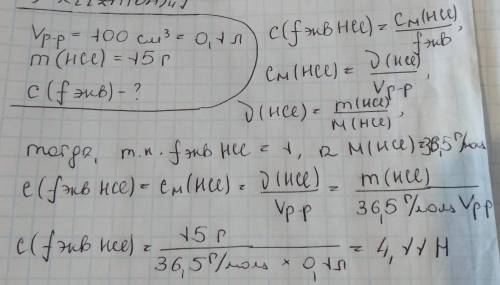 Vр-р = 100 см³ = 0,1 л
m(HCl) = 15 г
C(fэкв) - ?
C(fэкв HCl) = Cм(HCl)/fэкв,
Cм(HCl) = ν(HCl)/Vр-р,
ν(HCl) = m(HCl)/M(HCl),
тогда, т.к. fэкв HCl = 1, а M(HCl) = 36,5 г/моль
C(fэкв HCl) = Cм(HCl) = ν(HCl)/Vр-р = m(HCl)/36,5 г/моль Vр-р
C(fэкв HCl) = 15 г/36,5 г/моль × 0,1 л = 4,11 Н